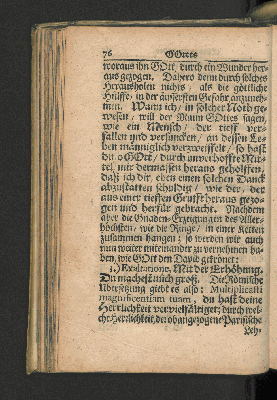 76 GOttes
woraus ihn GOtt, durch ein Wunder her-
aus gezogen. Dahero denn durch solches
Heraushölen nichts, als die göttliche
Hülffe, in der äussersten Gefahr anzuneh-
men. Wann ich, in solcher Noth ge-
wesen, will der Mann GOttes sagen,
wie ein Mensch, der tieff ver-
fallen und versuncken, an dessen Le-
ben männiglich verzweiffelt, so hast
du, o GOtt, durch unverhoffte Mit-
tel, mir dermassen heraus geholffen,
daß ich dir eben einen solchen Danck
abzustatten schuldig, wie der, der
aus einer tieffen Grufft heraus gezo-
gen und herfür gebracht. Nachdem
aber die Gnaden-Erzeigungen des Aller-
höchsten, wie die Ringe, in einer Ketten
zusammen hangen; so werden wir auch
nun weiter miteinander zu vernehmen ha-
ben, wie GOtt den David gekrönet:
3.) Exaltatione, Mit der Erhöhung.
Du machest mich groß. Die Römische
Ubersetzung giebt es also: Multiplicasti
magnificentiam tuam, du hast deine
Herrlichkeit vervielfältiget; durch wel-
che Herrlichkeit der obangezogene Parisische
Leh-